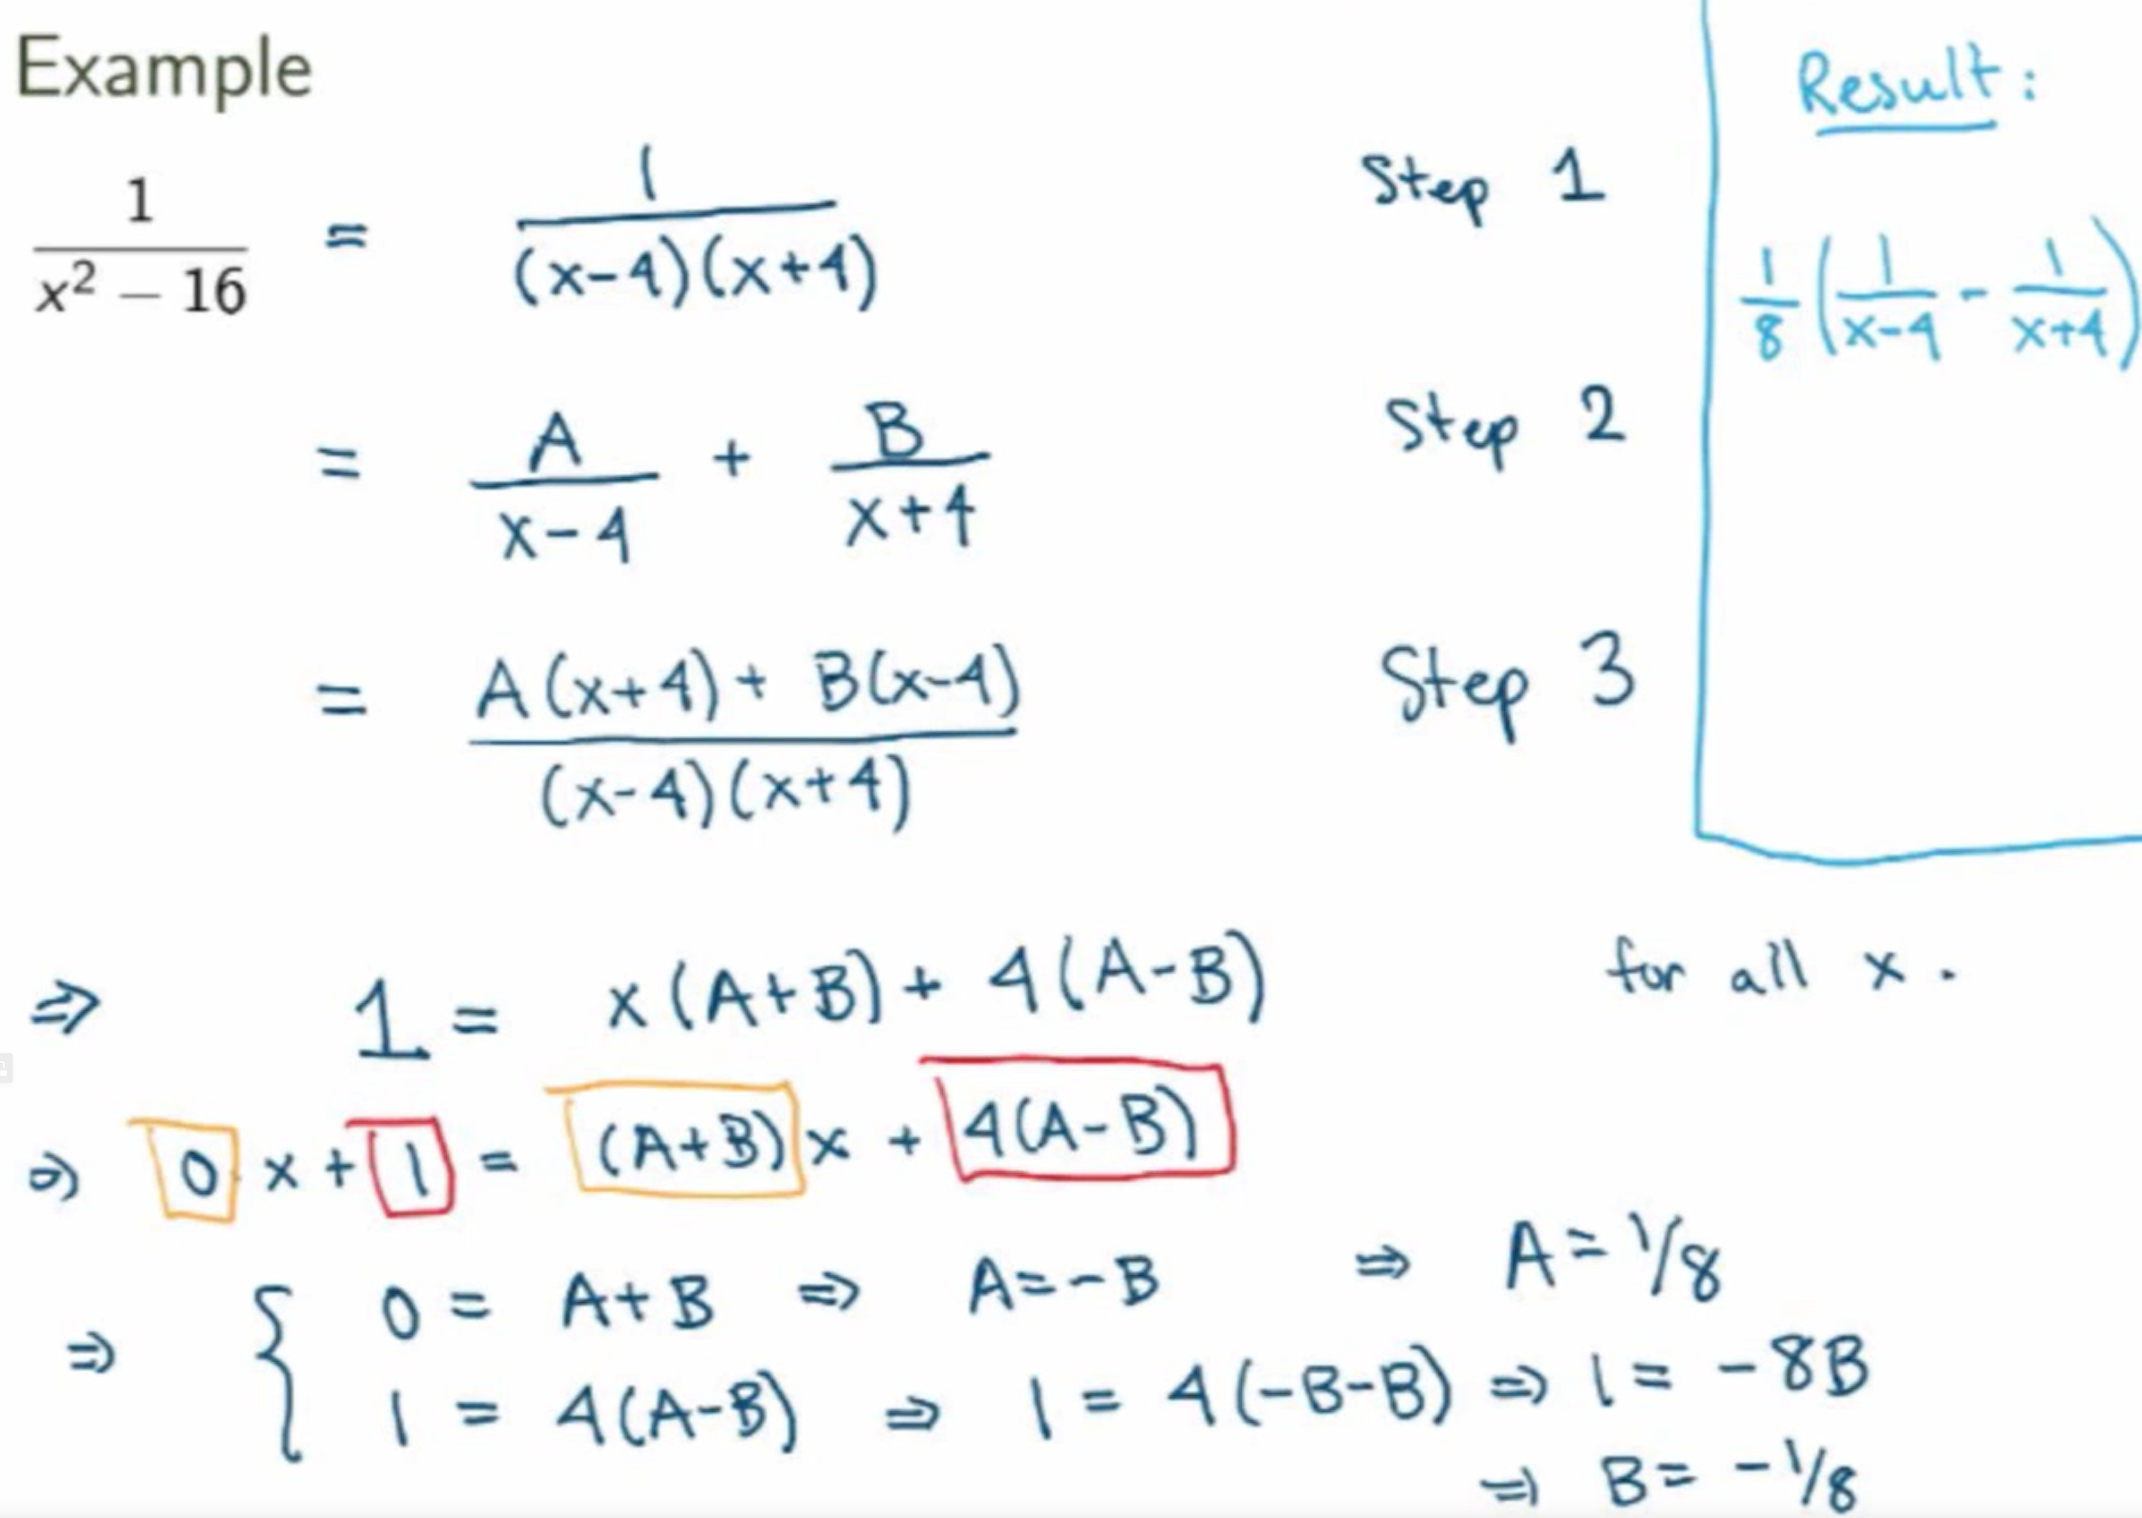 Example
1/(x² − 16) = 1/((x-4)(x+4)) Step 1
= A/(x-4) + B/(x+4) Step 2
= (A(x+4) + B(x-4))/((x-4)(x+4)) Step 3
Result:
1/8 (1/(x-4) - 1/(x+4))
⇒ 1 = x(A+B) + 4(A-B) for all x.
⇒ 0 x + 1 = (A+B) x + 4(A-B)
⇒ { 0 = A+B ⇒ A=-B ⇒ A = 1/8
1 = 4(A-B) ⇒ 1 = 4(-B-B) ⇒ 1 = -8B
⇒ B = -1/8